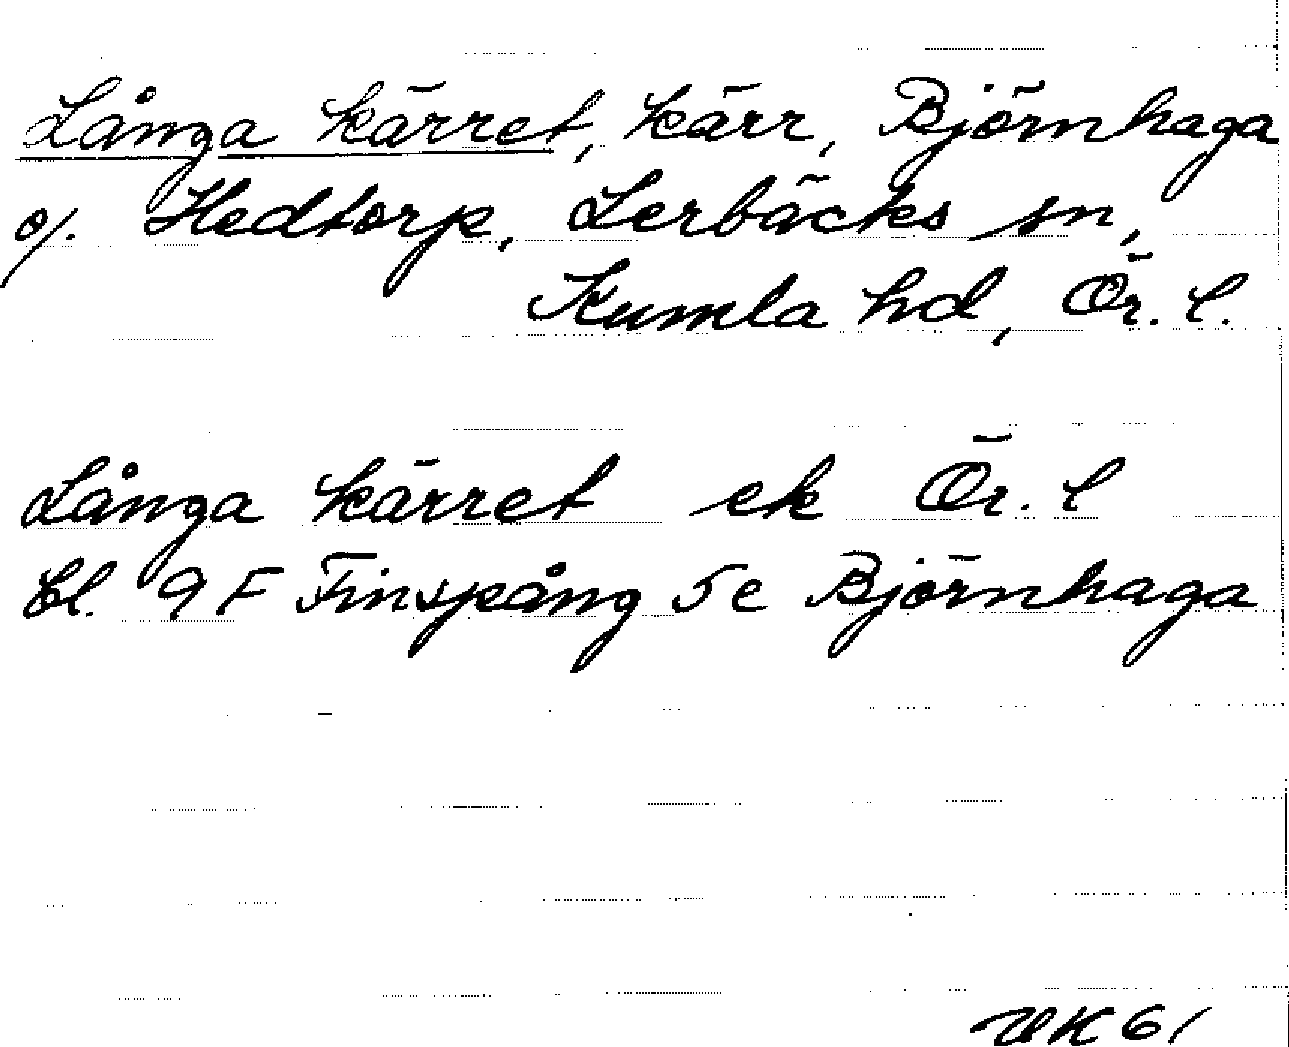 Långa kärret, kärr, Björnhaga
o/. Hedtorp, Lerbäcks sn,
Kumla hd, Ör. l.
Långa kärret ek Ör. l
bl. 9 F Finspång 5 e Björnhaga
UK 61